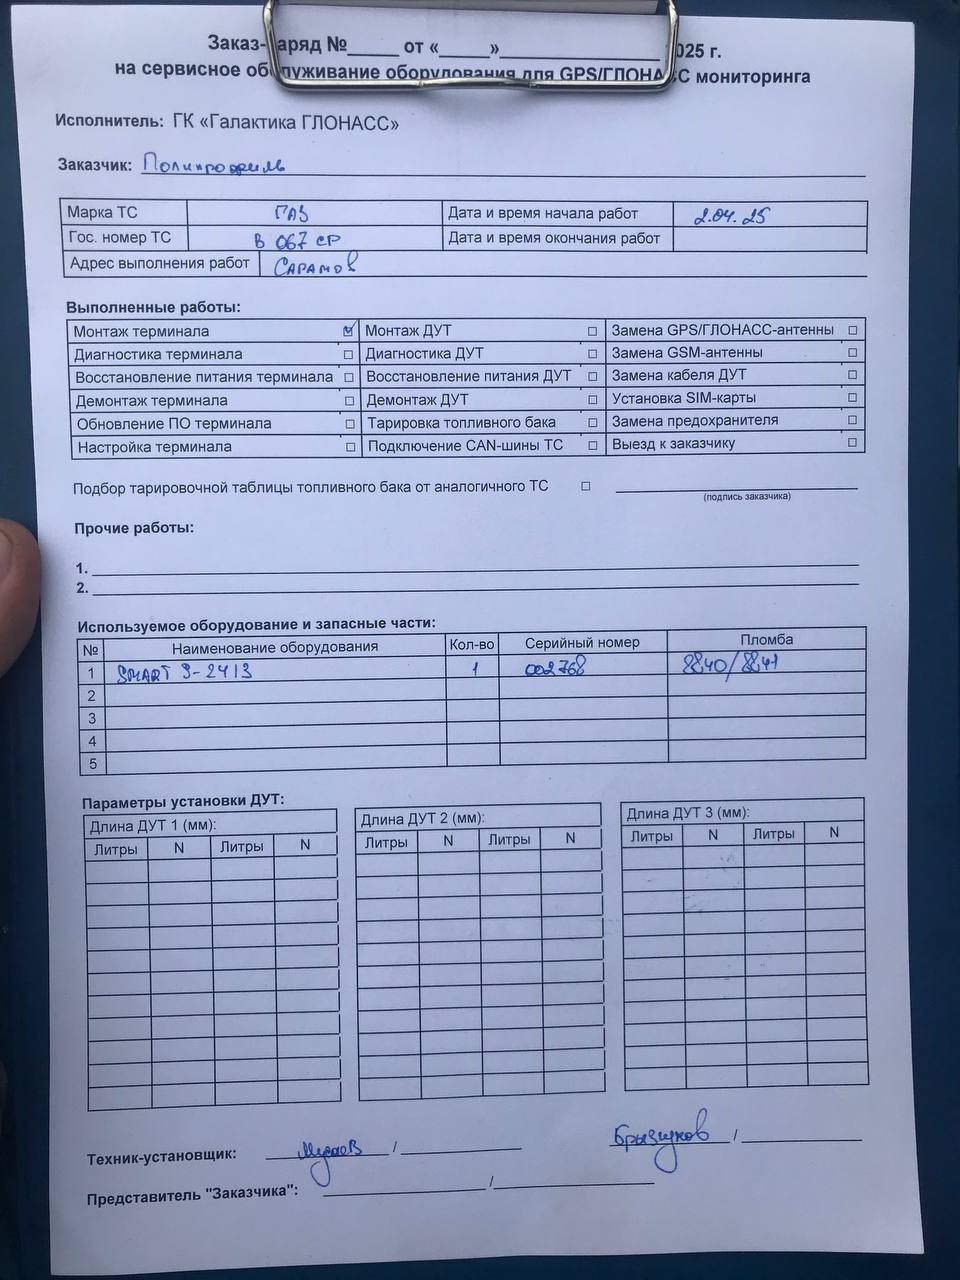 Заказ-наряд №_____ от «_____»________________ 2025 г.
на сервисное обслуживание оборудования для GPS/ГЛОНАСС мониторинга
Исполнитель: ГК «Галактика ГЛОНАСС»
Заказчик: Полипрофиль
Марка ТС ГАЗ Дата и время начала работ 2.04.25
Гос. номер ТС В 067 СР Дата и время окончания работ
Адрес выполнения работ Саратов
Выполненные работы:
Монтаж терминала ☑ Монтаж ДУТ ☐ Замена GPS/ГЛОНАСС-антенны ☐
Диагностика терминала ☐ Диагностика ДУТ ☐ Замена GSM-антенны ☐
Восстановление питания терминала ☐ Восстановление питания ДУТ ☐ Замена кабеля ДУТ ☐
Демонтаж терминала ☐ Демонтаж ДУТ ☐ Установка SIM-карты ☐
Обновление ПО терминала ☐ Тарировка топливного бака ☐ Замена предохранителя ☐
Настройка терминала ☐ Подключение CAN-шины ТС ☐ Выезд к заказчику ☐
Подбор тарировочной таблицы топливного бака от аналогичного ТС ☐
(подпись заказчика)
Прочие работы:
1.
2.
Используемое оборудование и запасные части:
№ Наименование оборудования Кол-во Серийный номер Пломба
1 SMART S-2413 1 002768 8840/8841
2
3
4
5
Параметры установки ДУТ:
Длина ДУТ 1 (мм): Длина ДУТ 2 (мм): Длина ДУТ 3 (мм):
Литры N Литры N Литры N Литры N Литры N Литры N
Техник-установщик: / Брызгунов /
Представитель "Заказчика": /